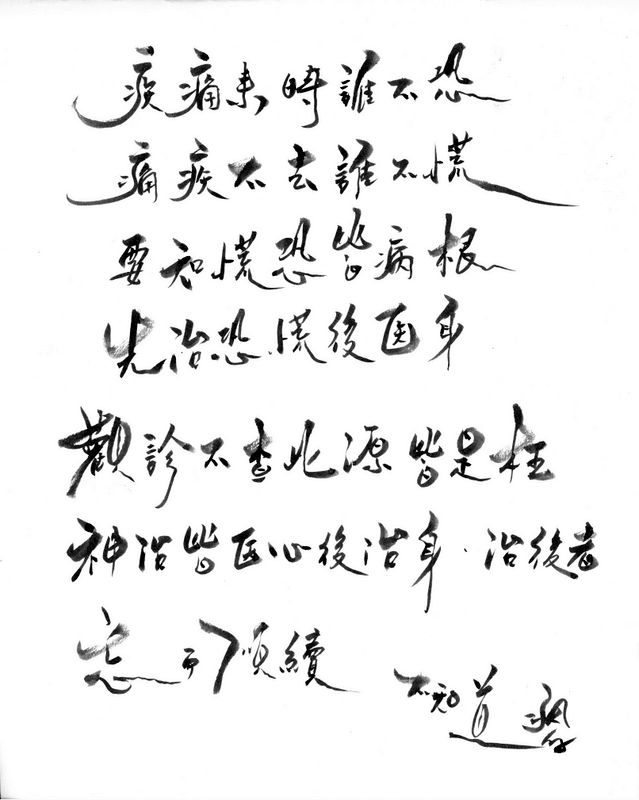 疾痛来時誰不恐
痛疾不去誰不慌
要知慌恐皆病根
先治恐慌後医身
觀診不查此源皆是枉
神治皆医心後治身·治後者
忘 順續
不知道